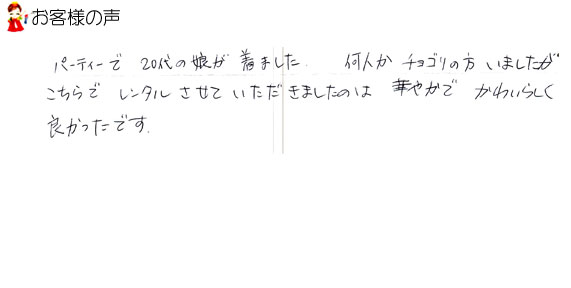 お客様の声
パーティーで 20代の娘が 着ました. 何人か チョゴリの方 いましたが
こちらで レンタル させて いただきましたのは 華やかで かわいらしく
良かったです.